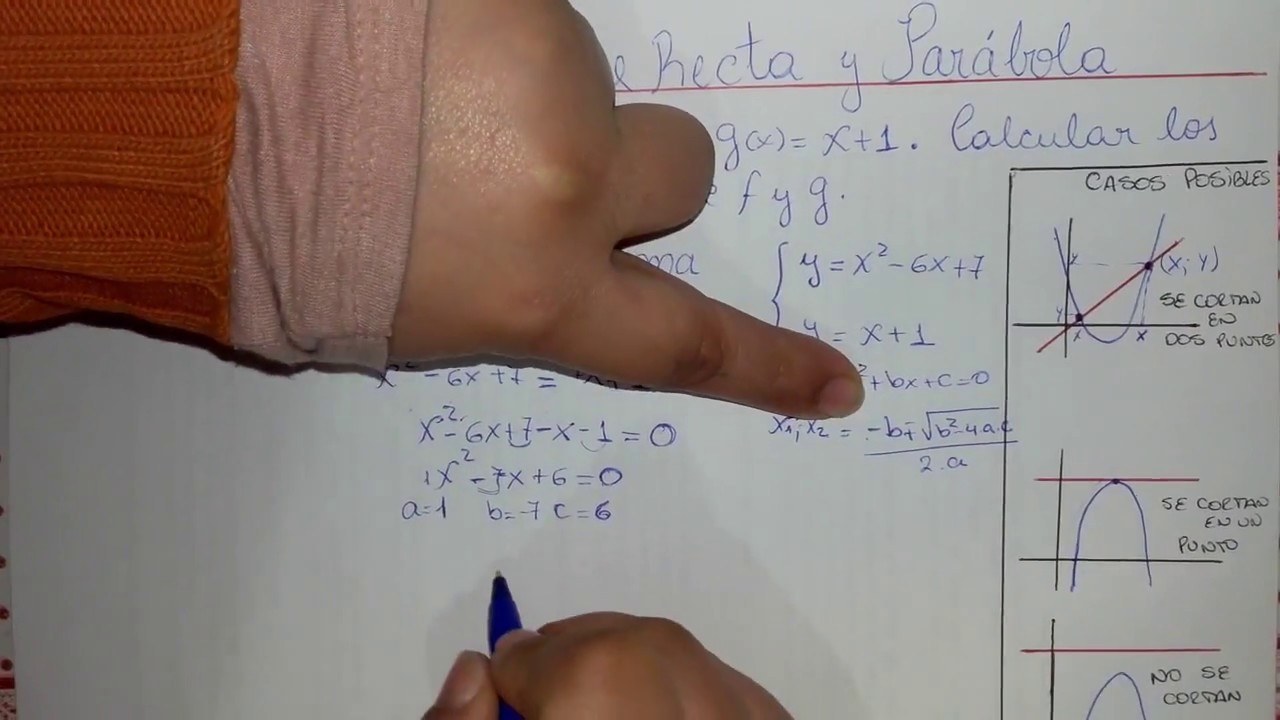 Recta y Parábola
g(x) = x+1. Calcular los
f y g.
y = x² - 6x + 7
y = x + 1
x² - 6x + 7 =
+ bx + c = 0
x² - 6x + 7 - x - 1 = 0
x₁; x₂ = -b ∓ √b² - 4.a.c
2.a
1x² - 7x + 6 = 0
a=1 b=-7 c=6
CASOS POSIBLES
(x; y)
y
y
x
x
SE CORTAN
EN
DOS PUNTOS
SE CORTAN
EN UN
PUNTO
NO SE
CORTAN